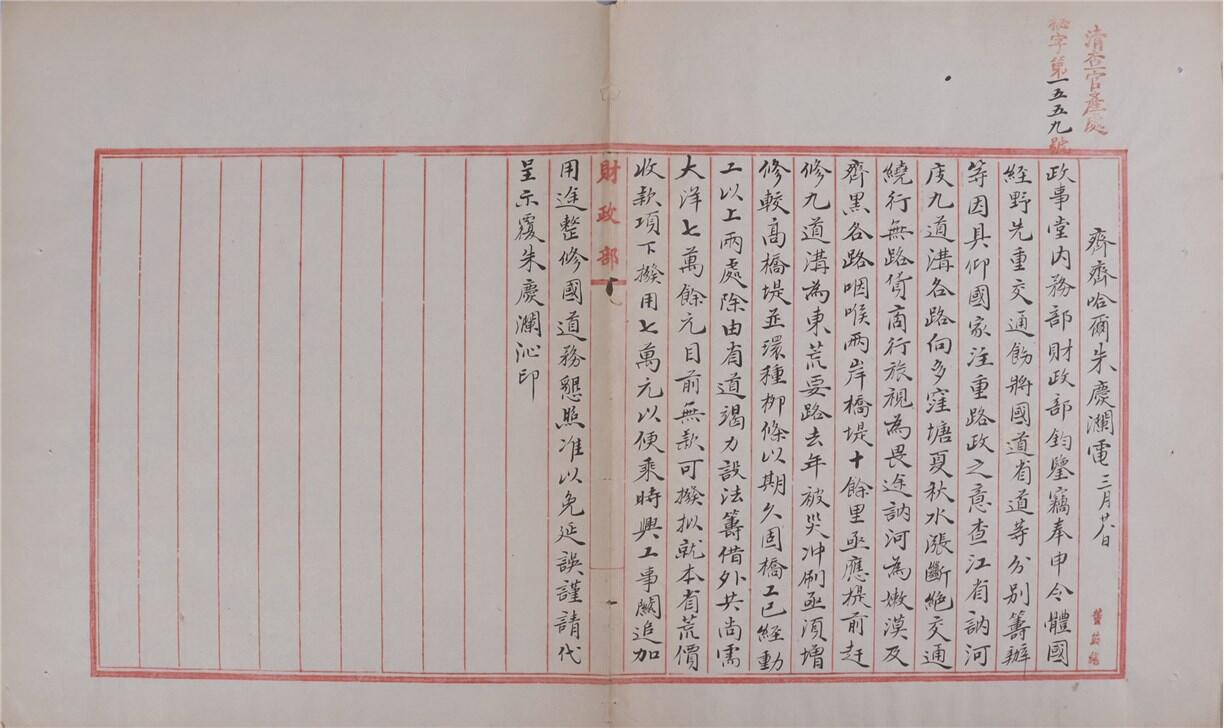 清查官產處
秘字第一五五九號
齊齊哈爾朱慶瀾電 三月廿八日
政事堂內務部財政部鈞鑒竊奉申令體國
經野先重交通飭將國道省道等分別籌辦
等因具仰國家注重路政之意查江省訥河
度九道溝各路向多窪塘夏秋水漲斷絕交通
繞行無路貨商行旅視為畏途訥河為嫩漠及
齊黑各路咽喉兩岸橋堤十餘里亟應提前赶
修九道溝為東荒要路去年被災沖刷亟須增
修較高橋堤並環種柳條以期久固橋工已經動
工以上兩處除由省道竭力設法籌借外共尚需
大洋七萬餘元目前無款可撥拟就本省荒價
收款項下撥用七萬元以便乘時興工事關追加
財政部
用途整修國道務懇照准以免延誤謹請代
呈示覆朱慶瀾沁印